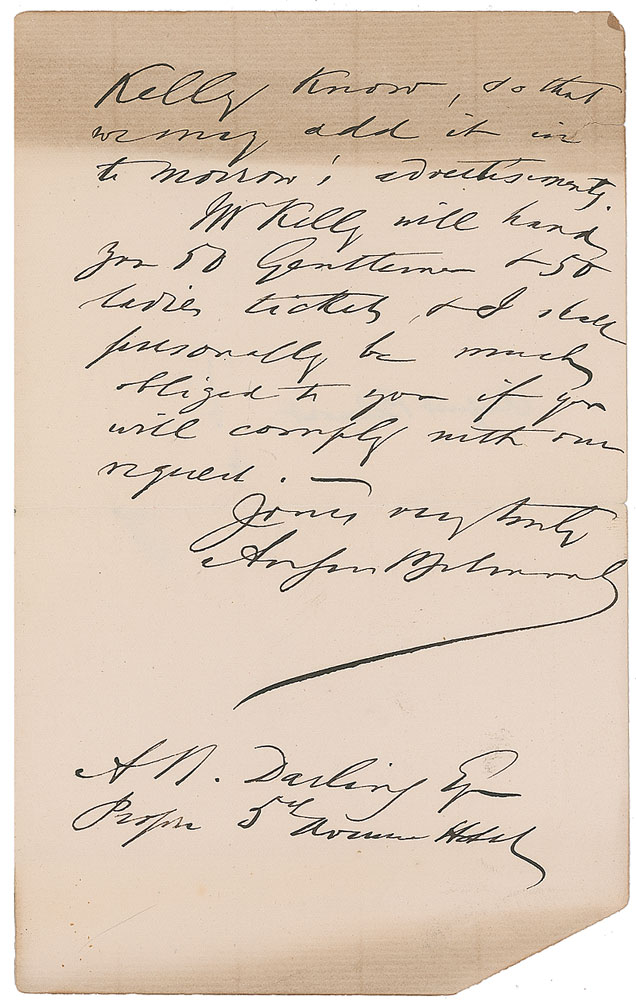 Kelly know, so that
we may add it in
to morrow's advertisements.
Mr Kelly will hand
you 50 Gentlemen & 50
ladies tickets, & I shall
personally be much
obliged to you if you
will comply with our
request. —
Yours very truly
August Belmont
A B. Darling Esq
Propr 5th Avenue Hotel